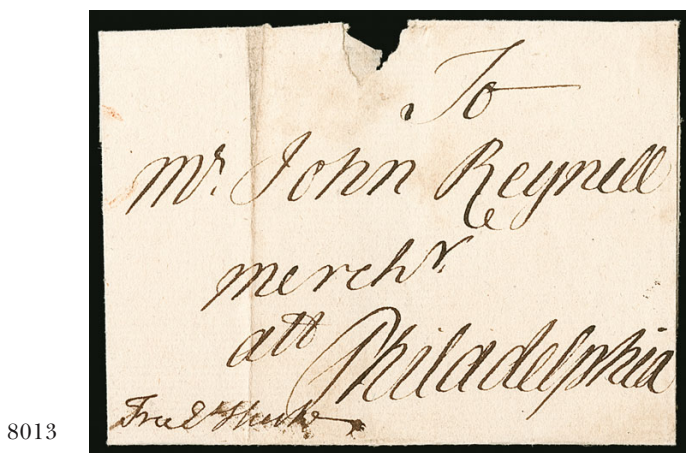 To
Mr. John Reynell
merchr.
att Philadelphia
8013